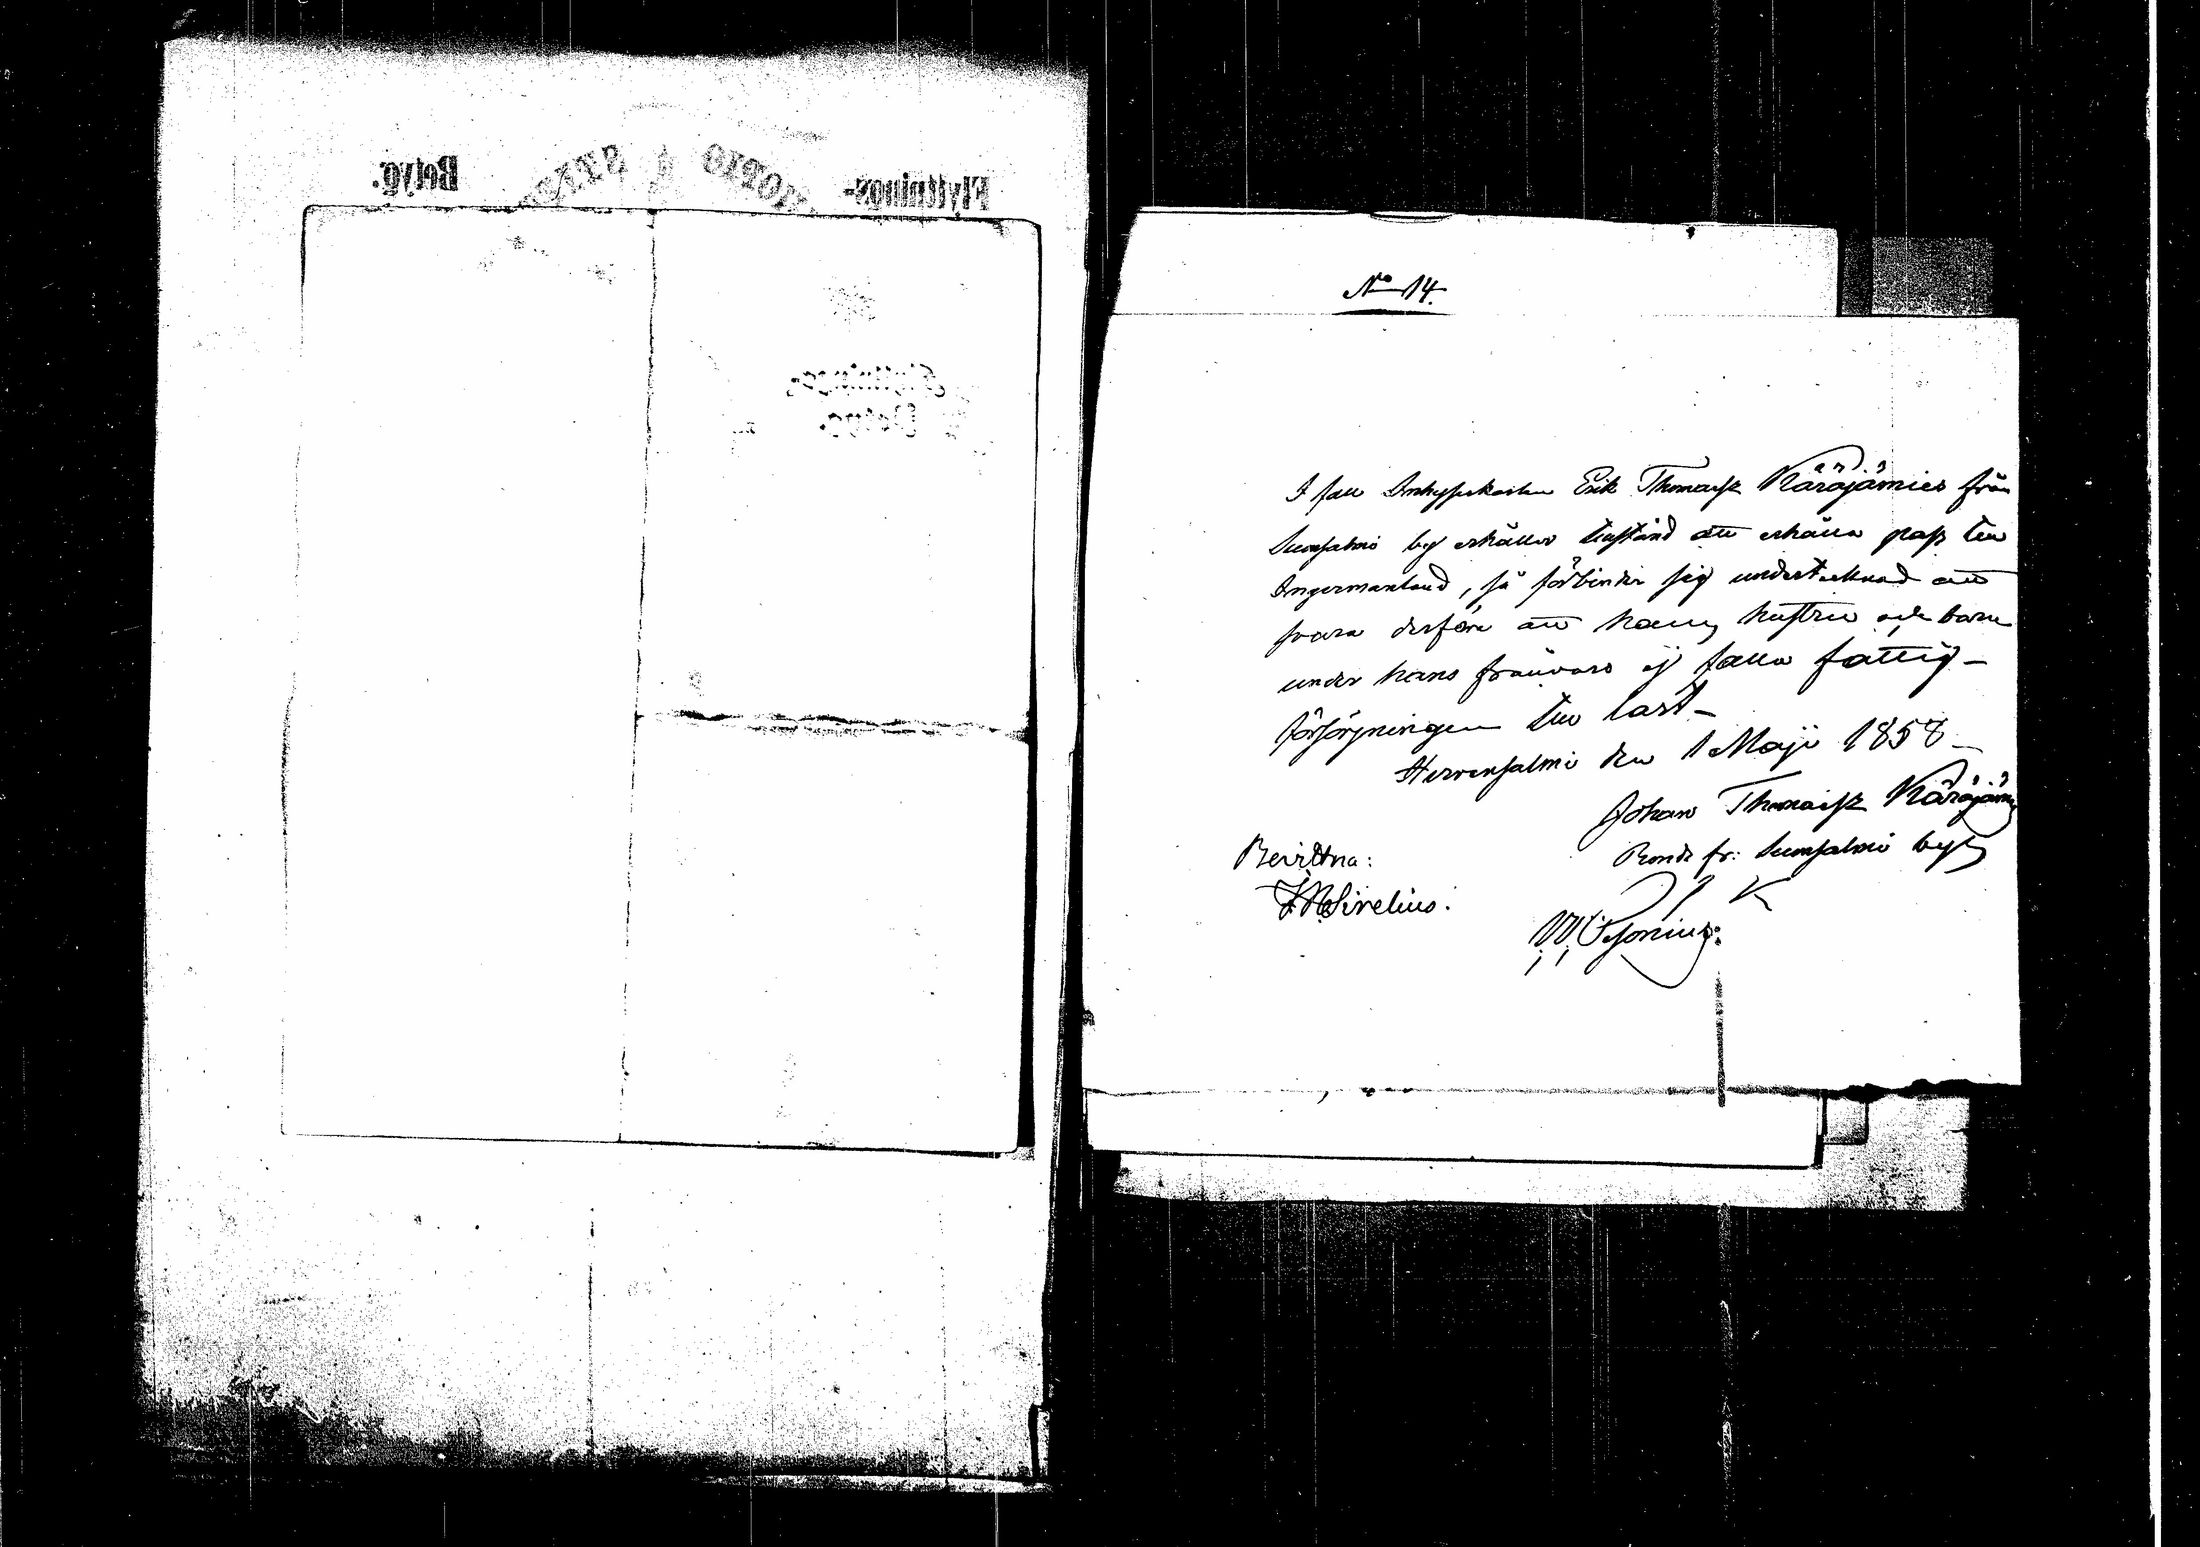 Flyttnings- Betyg.
Flyttnings-
Betyg.
No 14.
I fall Inhyseskarlen Erik Thomaiss. Käräjämies från
Suonsalmi by erhåller tillstånd att erhålla pass till
Ingermanland, så förbinder sig undertecknad att
svara derföre att hans hustru och barn
under hans frånvaro ej falla fattig-
försörjningen till last_
Hirvensalmi den 1 Maji 1858_
Johan Thomaiss. Käräjäm
Bonde fr: Suonsalmi by
Bevittna: